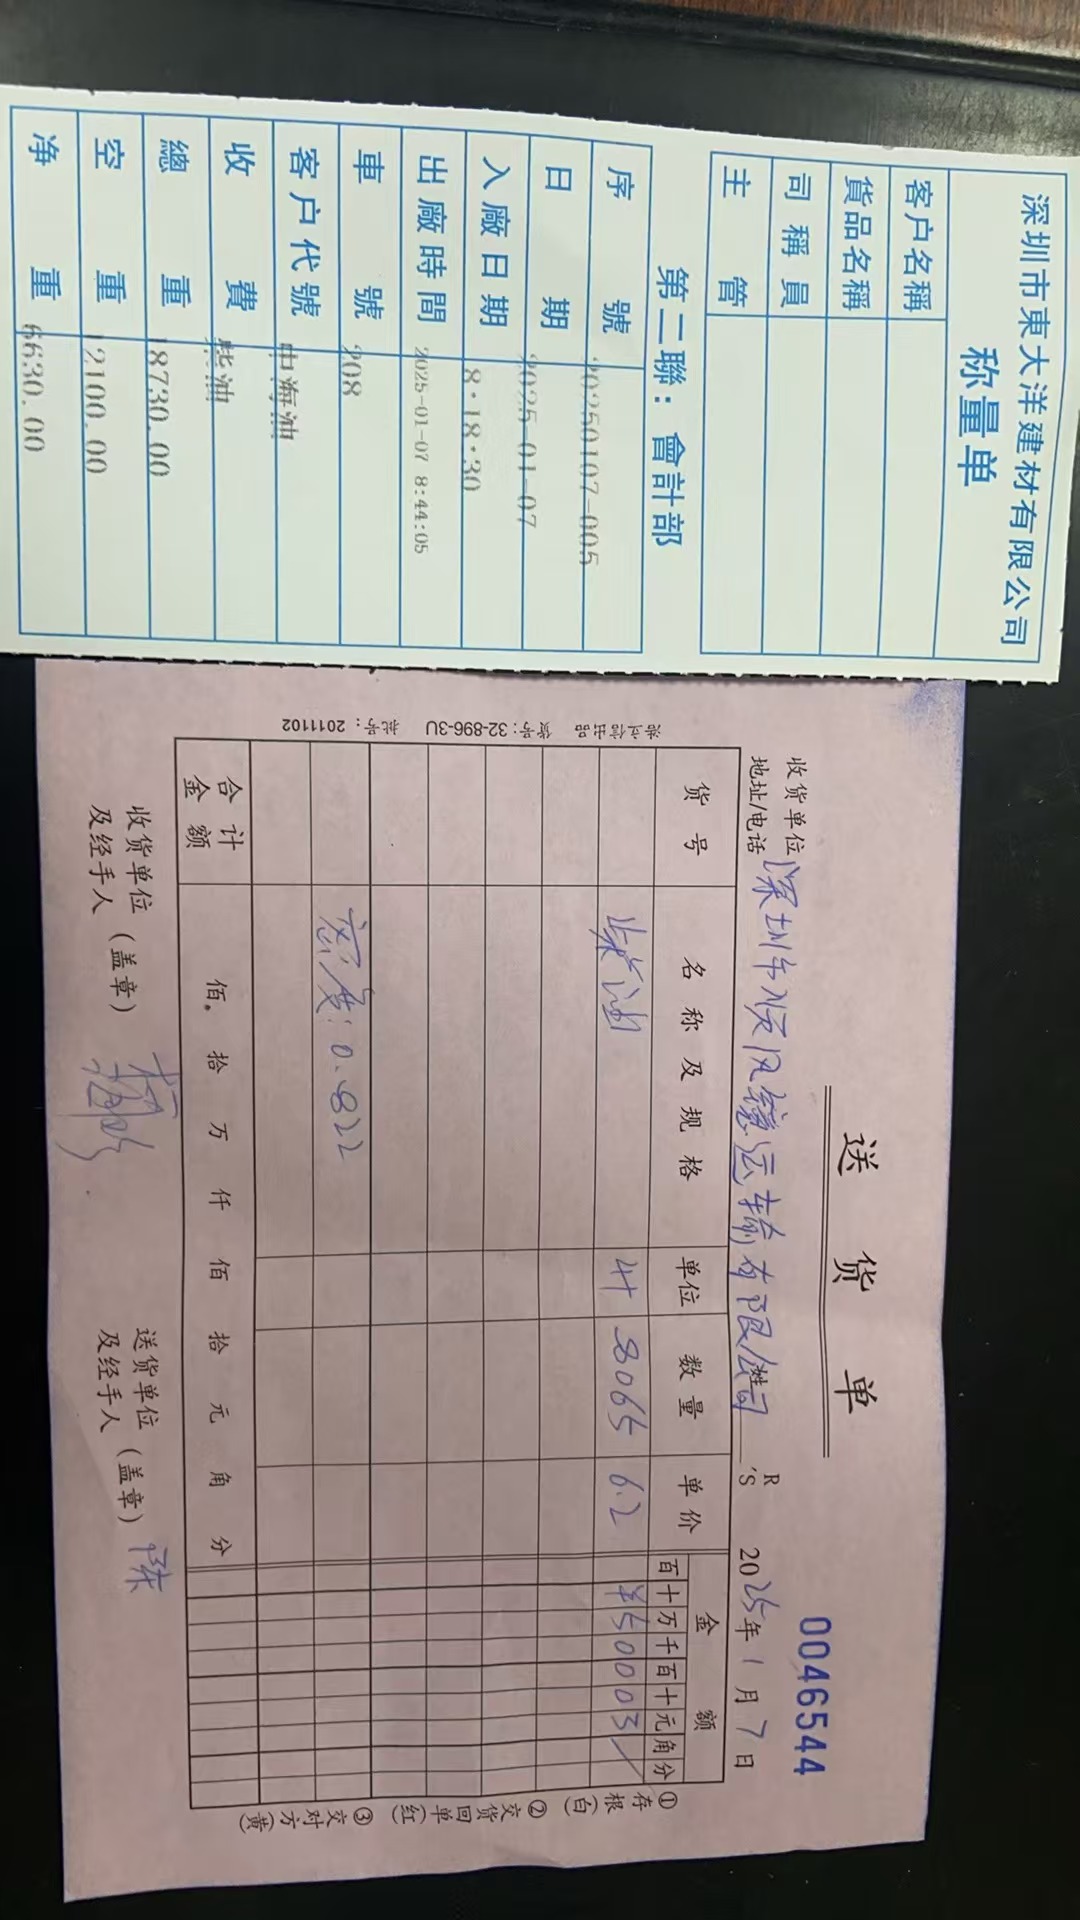 深圳市東大洋建材有限公司
称量单
客户名稱
貨品名稱
司稱員
主管
第二聯：會計部
序號 20250107-005
日期 2025-01-07
入廠日期 8:18:30
出廠時間 2025-01-07 8:44:05
車號 208
客户代號 中海油
收費 柴油
總重 18730.00
空重 12100.00
净重 6630.00
送货单
0046544
收货单位
地址/电话
深圳市顺风德运输有限公司
R
'S
2025年1月7日
货号 名称及规格 单位 数量 单价 金额
百十万千百十元角分
柴油 升 8065 6.2 ¥50003
密度:0.822
合计金额 佰 拾 万 仟 佰 拾 元 角 分
收货单位及经手人（盖章）
送货单位及经手人（盖章）陈
①存根(白) ②交货回单(红) ③交对方(黄)
货号:32-896-3U 批号:2011102